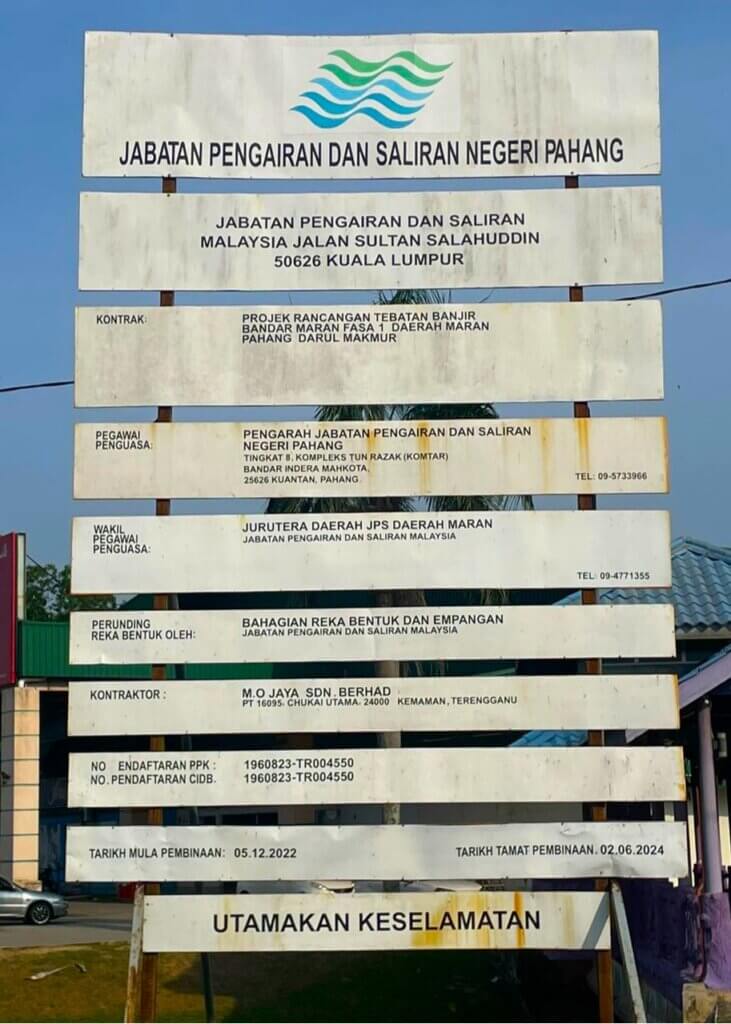 JABATAN PENGAIRAN DAN SALIRAN NEGERI PAHANG
JABATAN PENGAIRAN DAN SALIRAN
MALAYSIA JALAN SULTAN SALAHUDDIN
50626 KUALA LUMPUR
KONTRAK: PROJEK RANCANGAN TEBATAN BANJIR
BANDAR MARAN FASA 1 DAERAH MARAN
PAHANG DARUL MAKMUR
PEGAWAI PENGARAH JABATAN PENGAIRAN DAN SALIRAN
PENGUASA: NEGERI PAHANG
TINGKAT 8, KOMPLEKS TUN RAZAK (KOMTAR)
BANDAR INDERA MAHKOTA,
25626 KUANTAN, PAHANG. TEL: 09-5733966
WAKIL JURUTERA DAERAH JPS DAERAH MARAN
PEGAWAI JABATAN PENGAIRAN DAN SALIRAN MALAYSIA
PENGUASA:
TEL: 09-4771355
PERUNDING BAHAGIAN REKA BENTUK DAN EMPANGAN
REKA BENTUK OLEH: JABATAN PENGAIRAN DAN SALIRAN MALAYSIA
KONTRAKTOR : M.O JAYA SDN. BERHAD
PT 16095, CHUKAI UTAMA, 24000 KEMAMAN, TERENGGANU
NO ENDAFTARAN PPK : 1960823-TR004550
NO. PENDAFTARAN CIDB. 1960823-TR004550
TARIKH MULA PEMBINAAN: 05.12.2022 TARIKH TAMAT PEMBINAAN. 02.06.2024
UTAMAKAN KESELAMATAN